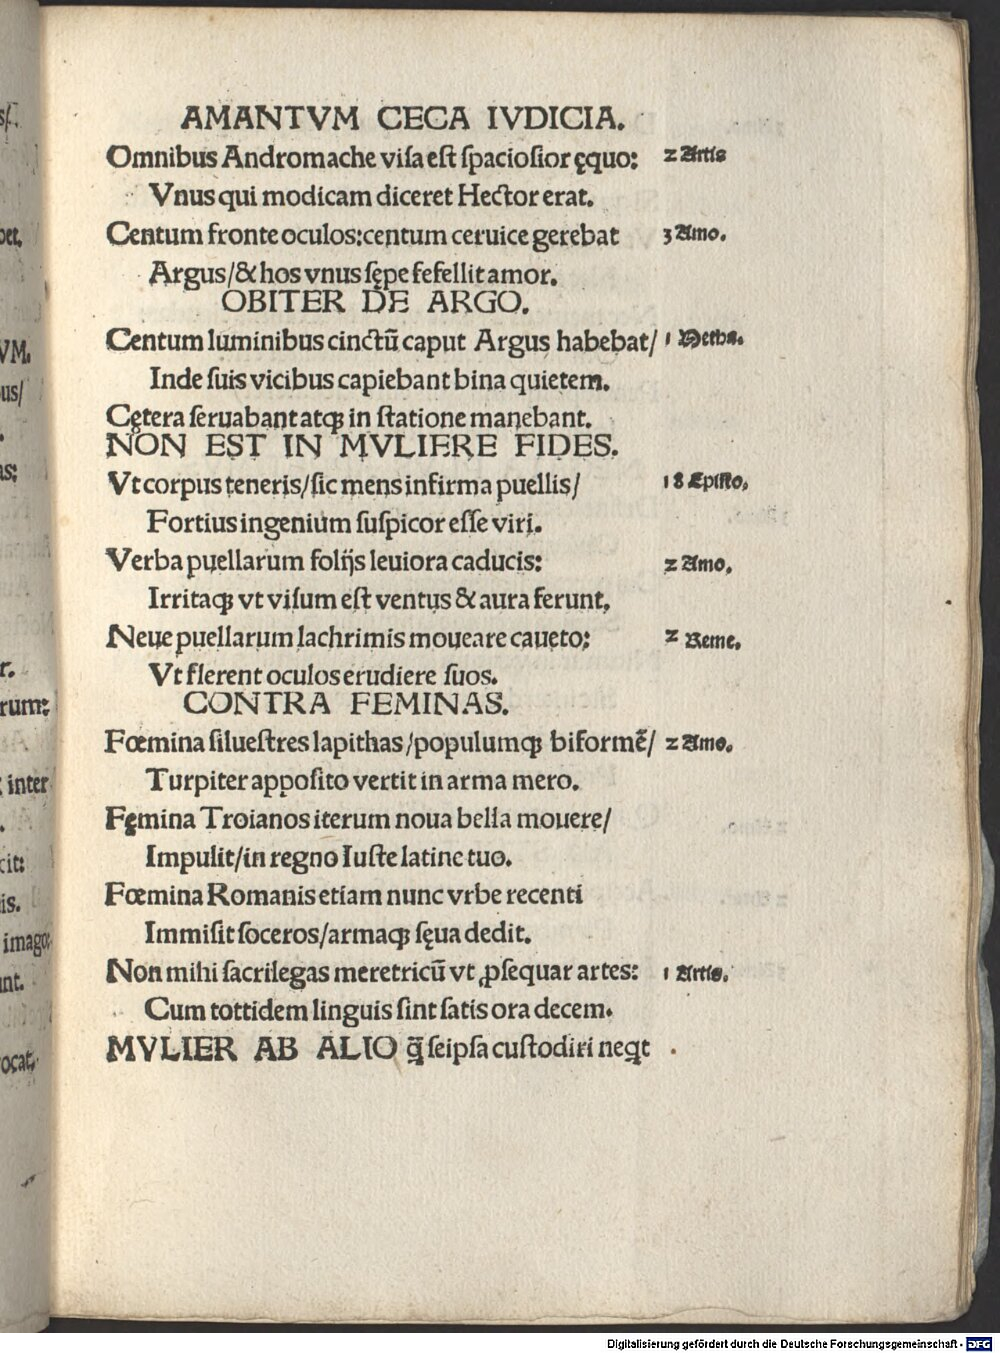 AMANTVM CECA IVDICIA.
Omnibus Andromache viſa eſt ſpacioſior ęquo: 2 Artis
Vnus qui modicam diceret Hector erat.
Centum fronte oculos: centum ceruice gerebat 3 Amo.
Argus/ & hos vnus ſępe fefellit amor.
OBITER DE ARGO.
Centum luminibus cinctū caput Argus habebat/ 1 Metha.
Inde ſuis vicibus capiebant bina quietem.
Cętera ſeruabant atqꝫ in ſtatione manebant.
NON EST IN MVLIERE FIDES.
Vt corpus teneris/ ſic mens infirma puellis/ 18 Epiſto,
Fortius ingenium ſuſpicor eſſe viri.
Verba puellarum folijs leuiora caducis: 2 Amo.
Irritaqꝫ vt viſum eſt ventus & aura ferunt,
Neue puellarum lachrimis moueare caueto: 2 Reme.
Vt flerent oculos erudiere ſuos.
CONTRA FEMINAS.
Fœmina ſilueſtres lapithas/ populumqꝫ biformē/ 2 Amo.
Turpiter appoſito vertit in arma mero.
Fęmina Troianos iterum noua bella mouere/
Impulit/ in regno Iuſte latine tuo.
Fœmina Romanis etiam nunc vrbe recenti
Immiſit ſoceros/ armaqꝫ ſęua dedit.
Non mihi ſacrilegas meretricū vt ꝓſequar artes: 1 Artis.
Cum tottidem linguis ſint ſatis ora decem.
MVLIER AB ALIO q̄ ſeipſa cuſtodiri neqt .
pet.
VM.
us/
as:
r.
rum:
inter
cit:
is.
imago:
unt.
ocat.
Digitalisierung gefördert durch die Deutsche Forschungsgemeinschaft - DFG